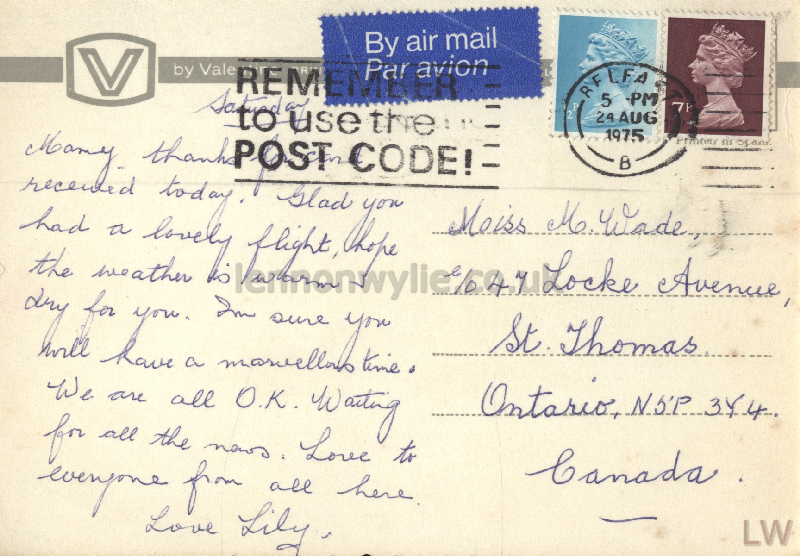 V
by Vale
By air mail
Par avion
REMEMBER
to use the
POST CODE!
BELFAST
5 - PM
24 AUG
1975
B
7P
Printed in Spain
Saturday
Many thanks for card
received today. Glad you
had a lovely flight, hope
the weather is warm &
dry for you. I'm sure you
will have a marvellous time.
We are all O.K. Waiting
for all the news. Love to
everyone from all here.
Love Lily.
Miss M. Wade,
c/o 47 Locke Avenue,
St. Thomas.
Ontario, N5P 3Y4.
Canada.
lennonwylie.co.uk
LW